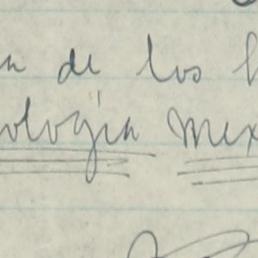 de los
ología Mex